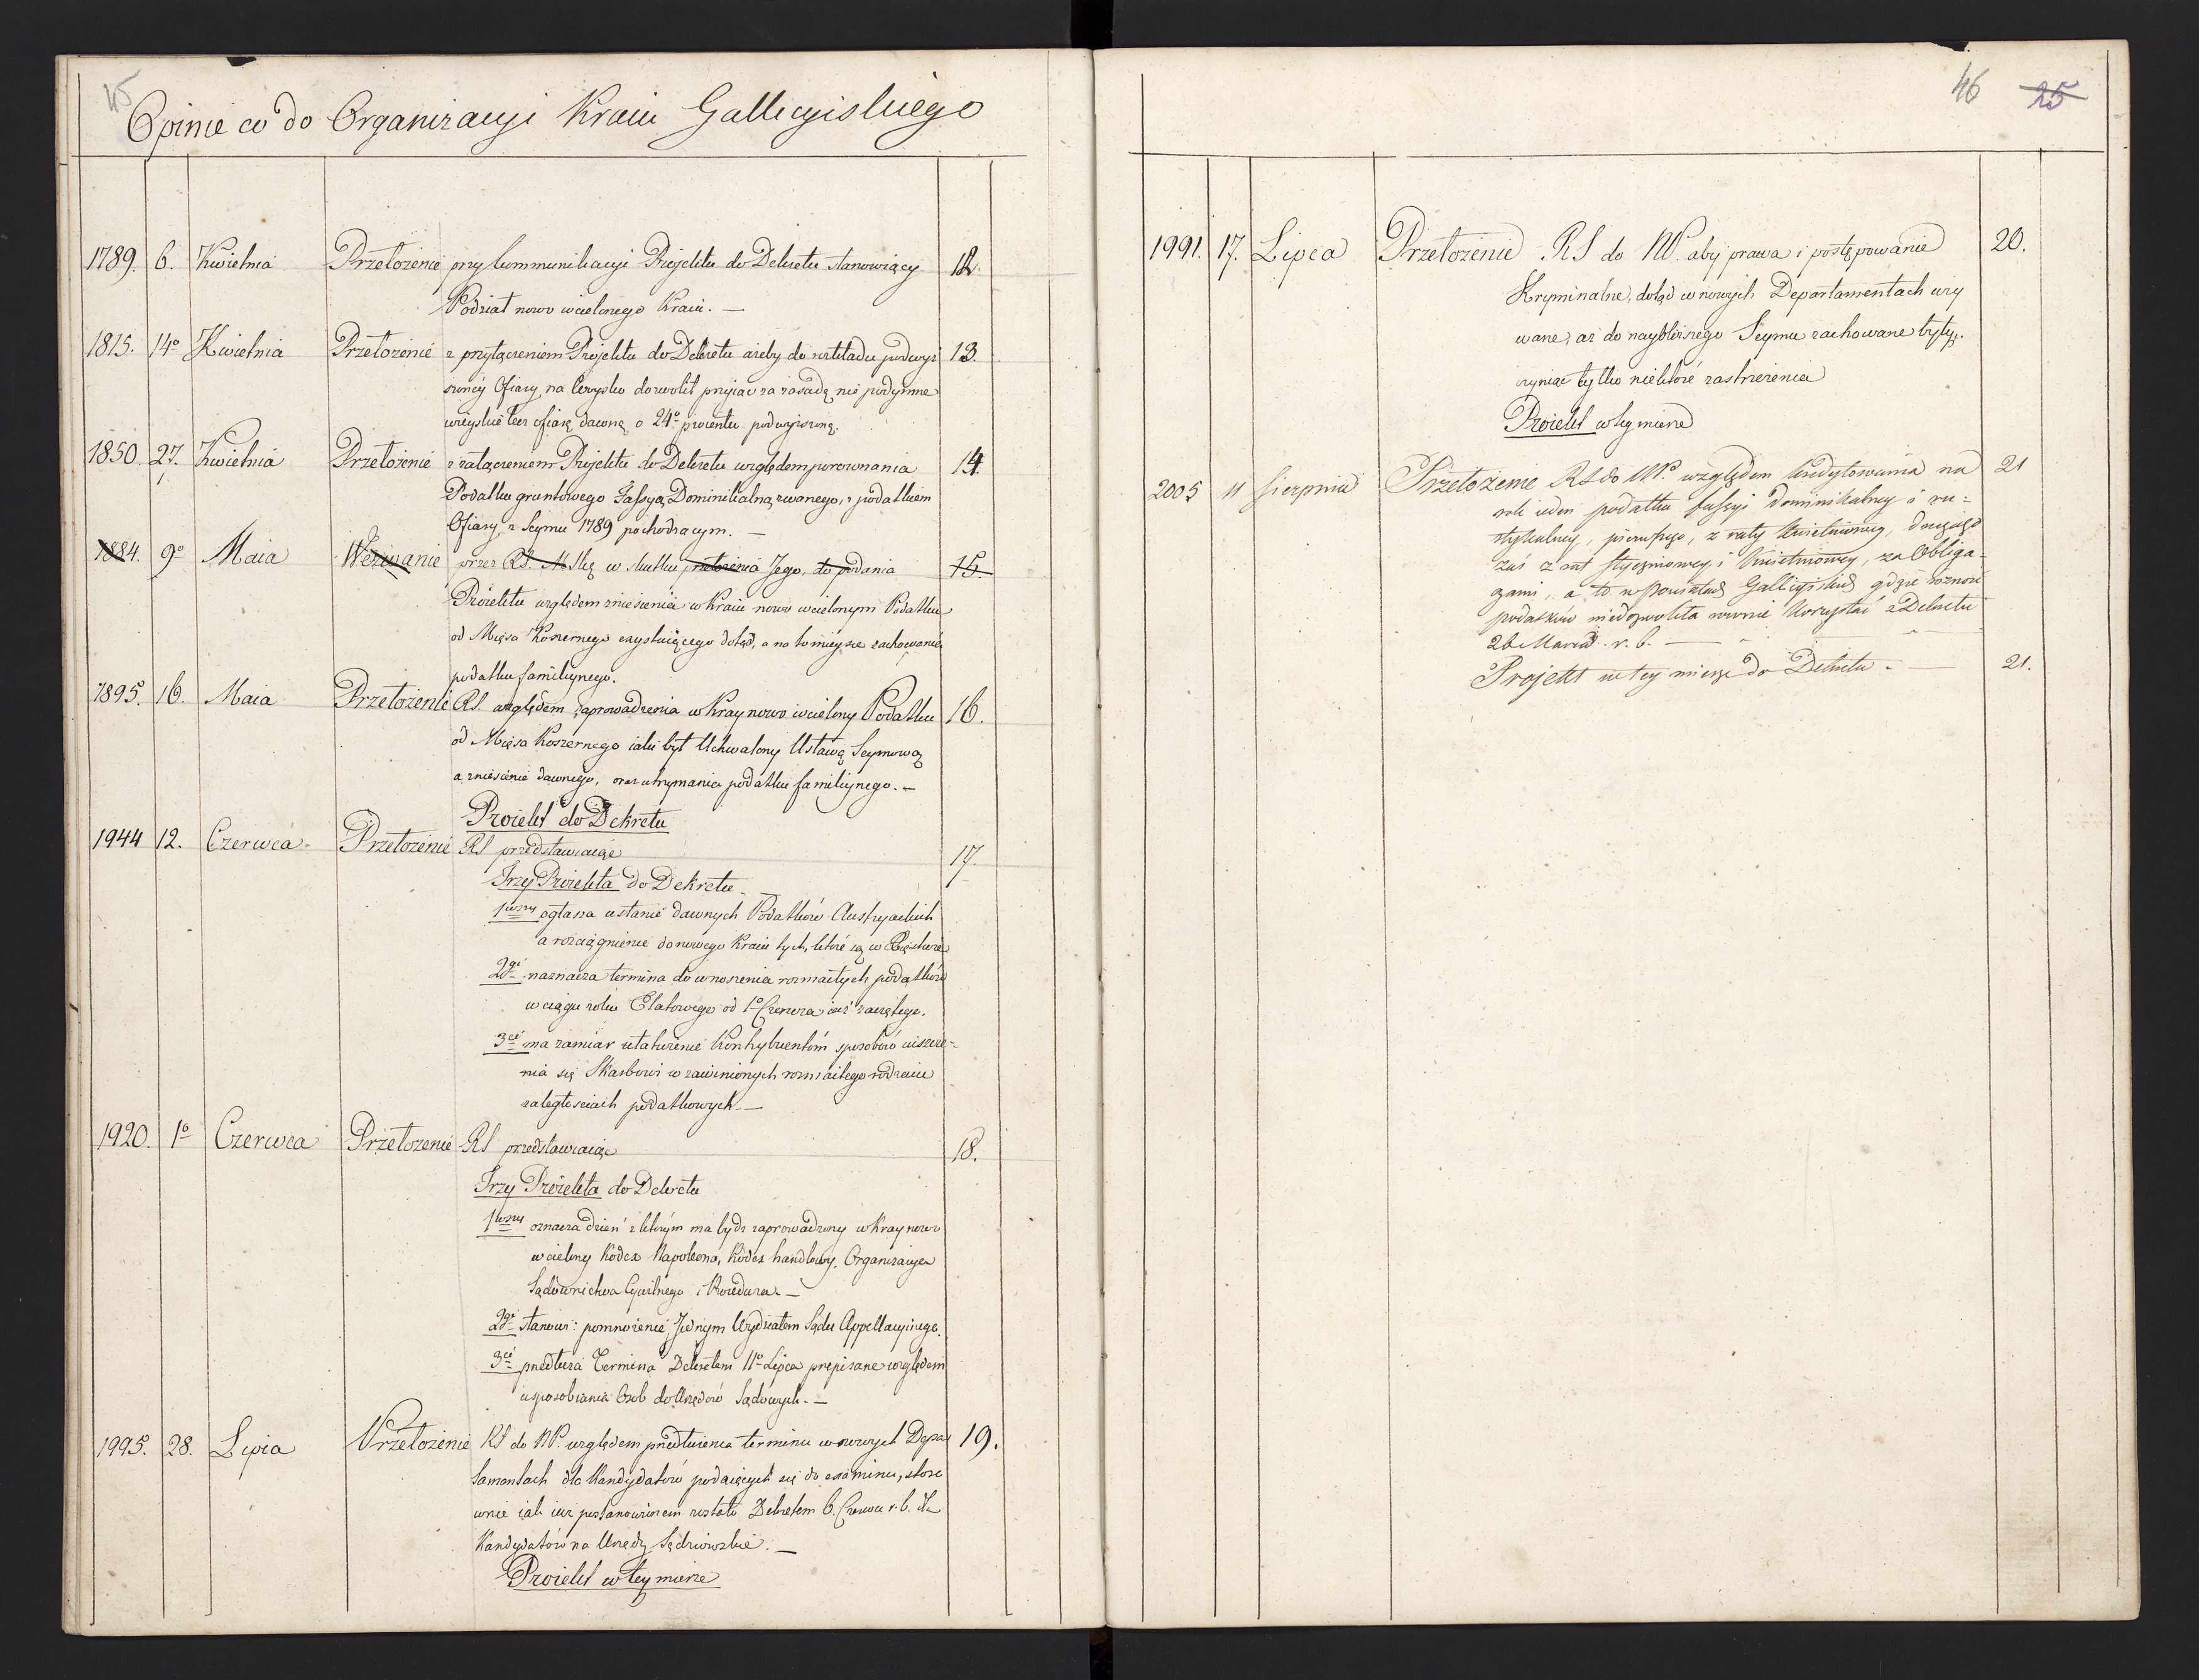 45
Opinie co do Organizacyi Kraiu Gallicyiskiego
1789. 6. Kwietnia Przełożenie przy kommunikacyi Projektu do Dekretu stanowiący 12.
Podział nowo wcielonego Kraiu. —
1815. 14º Kwietnia Przełożenie z przyłączeniem Projektu do Dekretu ażeby do rozkładu podwyż 13.
szoney Ofiary na Woysko dozwolił przyiąć za zasadę nie podymne
wieyskie lecz ofiarę dawną o 24º procentu podwyższoną.
1850. 27. Kwietnia Przełożenie z załączeniem Projektu do Dekretu względem porownania 14.
Podatku gruntowego Fassyą Dominikalną zwanego, z podatkiem
Ofiary z Seymu 1789 pochodzącym. —
1884. 9º Maia Wezwanie przez RS. w skutku przełożenia Jego, do podania 15.
Proiektu względem zniesienia w Kraiu nowo wcielonym Podatku
od Mięsa Koszernego exystuiącego dotąd, a na to mieysce zachowanie
podatku familiynego.
1895. 16. Maia Przełożenie RS. względem zaprowadzenia w Kray nowo wcielony Podatku 16.
od Mięsa Koszernego iaki był Uchwalony Ustawą Seymową
a zniesienie dawnego, oraz utrzymania podatku familiynego. —
Proiekt do Dekretu
1944 12. Czerwca Przełożenie RS przedstawiaiąc 17.
Trzy Proiekta do Dekretu.
1wszy ogłasza ustanie dawnych Podatków Austryackich
a rozciągnienie do nowego Kraiu tych, które są w Xięstwie
2gi naznacza termina do wnoszenia rozmaitych podatków
w ciągu roku Etatowego od 1º Czerwca iuż zaczętego.
3ci ma zamiar ułatwienie Kontrybuentóm sposobów uiszcze-
nia się Skarbowi w zawinionych rozmaitego rodzaiu
zaległościach podatkowych. —
1920. 1º Czerwca Przełożenie RS przedstawiaiąc 18.
Trzy Proiekta do Dekretu
1wszy oznacza dzień z którym ma bydź zaprowadzony w Kray nowo
wcielony Kodex Napoleona, Kodex handlowy, Organizacya
Sądownictwa Cywilnego i Procedura. —
2gi stanowi: pomnożenie Jednym Wydziałem Sądu Appellacyinego.
3ci przedłuża Termina Dekretem 11º Lipca przepisane względem
usposobiania Osob do Urzędów Sądowych. —
1995. 28. Lipca Przełożenie RS do NP. względem przedłużenia terminu w nowych Depar 19.
tamentach dla Kandydatów podaiących się do examinu, stoso
wnie iak iuż postanowionem zostało Dekretem 6. Czerwca r. b. dla
Kandydatów na Urzędy Sędziowskie. —
Proiekt w tey mierze
46 25
1991. 17. Lipca Przełożenie RS do NP. aby prawa i postępowanie 20.
Kryminalne, dotąd w nowych Departamentach uży
wane, aż do naybliższego Seymu zachowane były,
czyniąc tylko niektóre zastrzeżenia
Proiekt w tey mierze
2005 11 Sierpnia Przełożenie RS do NP. względem kredytowania na 21
rok ieden podatku fassyi dominikalney i ru=
stykalney, pierwszego, z raty Kwietniowey, drugiego
zaś z rat Styczniowey i Kwietniowey, za Obliga-
cyami, a to w Powiatach Gallicyiskich gdzie rożność
podatków niedozwoliła rownie korzystać z Dekretu
26 Marca r. b. —
Projekt w tey mierze do Dekretu — 21.